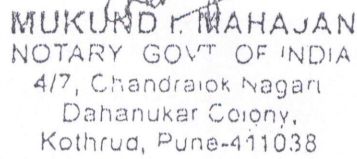 MUKUND r. MAHAJAN
NOTARY GOVT OF INDIA
4/7, Chandralok Nagari
Dahanukar Colony,
Kothrud, Pune-411038